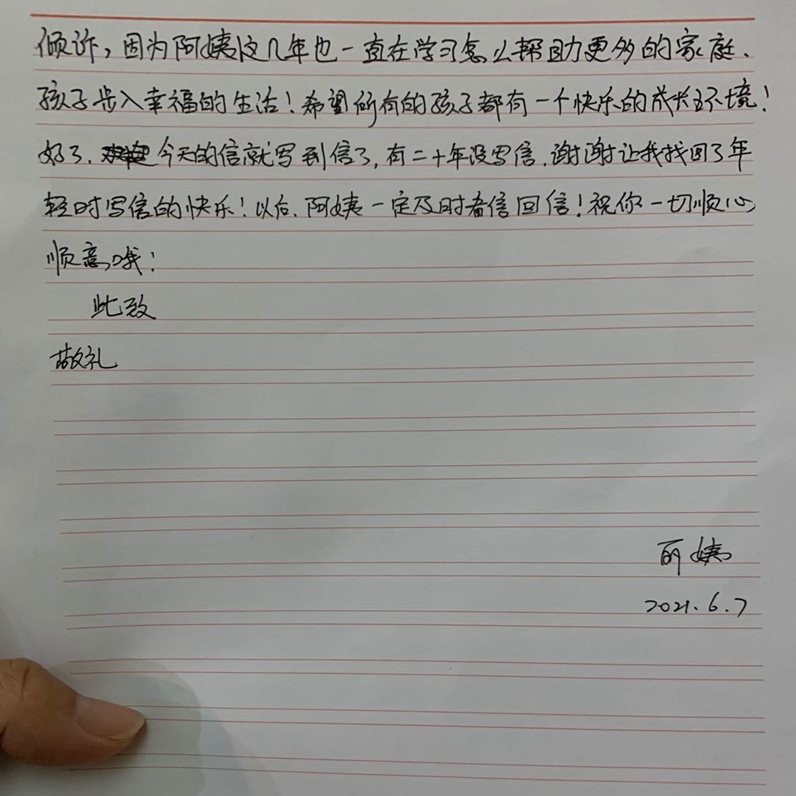 倾诉，因为阿姨这几年也一直在学习怎么帮助更多的家庭、
孩子步入幸福的生活！希望所有的孩子都有一个快乐的成长环境！
好了，今天的信就写到信了，有二十年没写信，谢谢让我找回了年
轻时写信的快乐！以后，阿姨一定及时看信回信！祝你一切顺心
顺意哦！
此致
敬礼
丽姨
2021.6.7